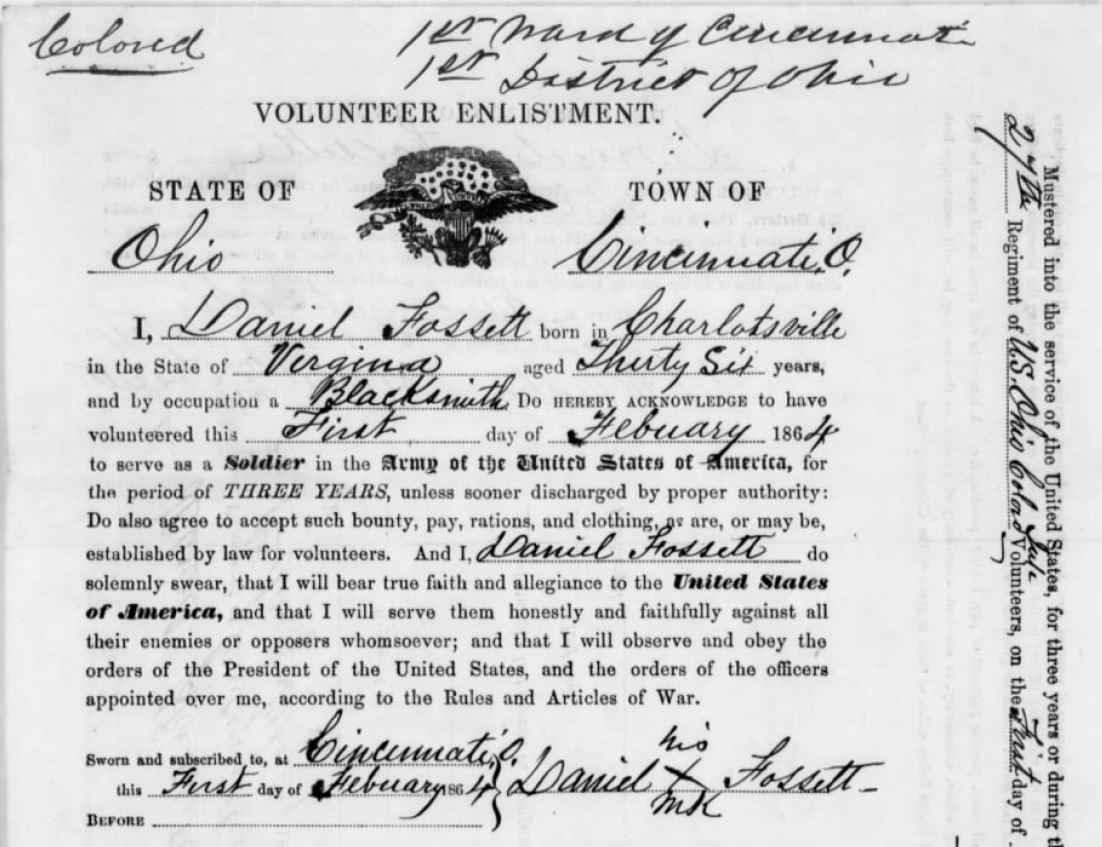 Colored
1st Ward of Cincinnati
1st District of Ohio
VOLUNTEER ENLISTMENT.
STATE OF TOWN OF
Ohio Cincinnati, O.
I, Daniel Fossett born in Charlotsville
in the State of Verginia aged Thirty Six years,
and by occupation a Blacksmith Do HEREBY ACKNOWLEDGE to have
volunteered this First day of Febuary 1864
to serve as a Soldier in the Army of the United States of America, for
the period of THREE YEARS, unless sooner discharged by proper authority:
Do also agree to accept such bounty, pay, rations, and clothing, as are, or may be,
established by law for volunteers. And I, Daniel Fossett do
solemnly swear, that I will bear true faith and allegiance to the United States
of America, and that I will serve them honestly and faithfully against all
their enemies or opposers whomsoever; and that I will observe and obey the
orders of the President of the United States, and the orders of the officers
appointed over me, according to the Rules and Articles of War.
Sworn and subscribed to, at Cincinnati, O.
this First day of Febuary 1864
his
Daniel X Fossett
mk
BEFORE
Mustered into the service of the United States, for three years or during th
27th Regiment of U.S. Ohio Colord Volunteers, on the First day of